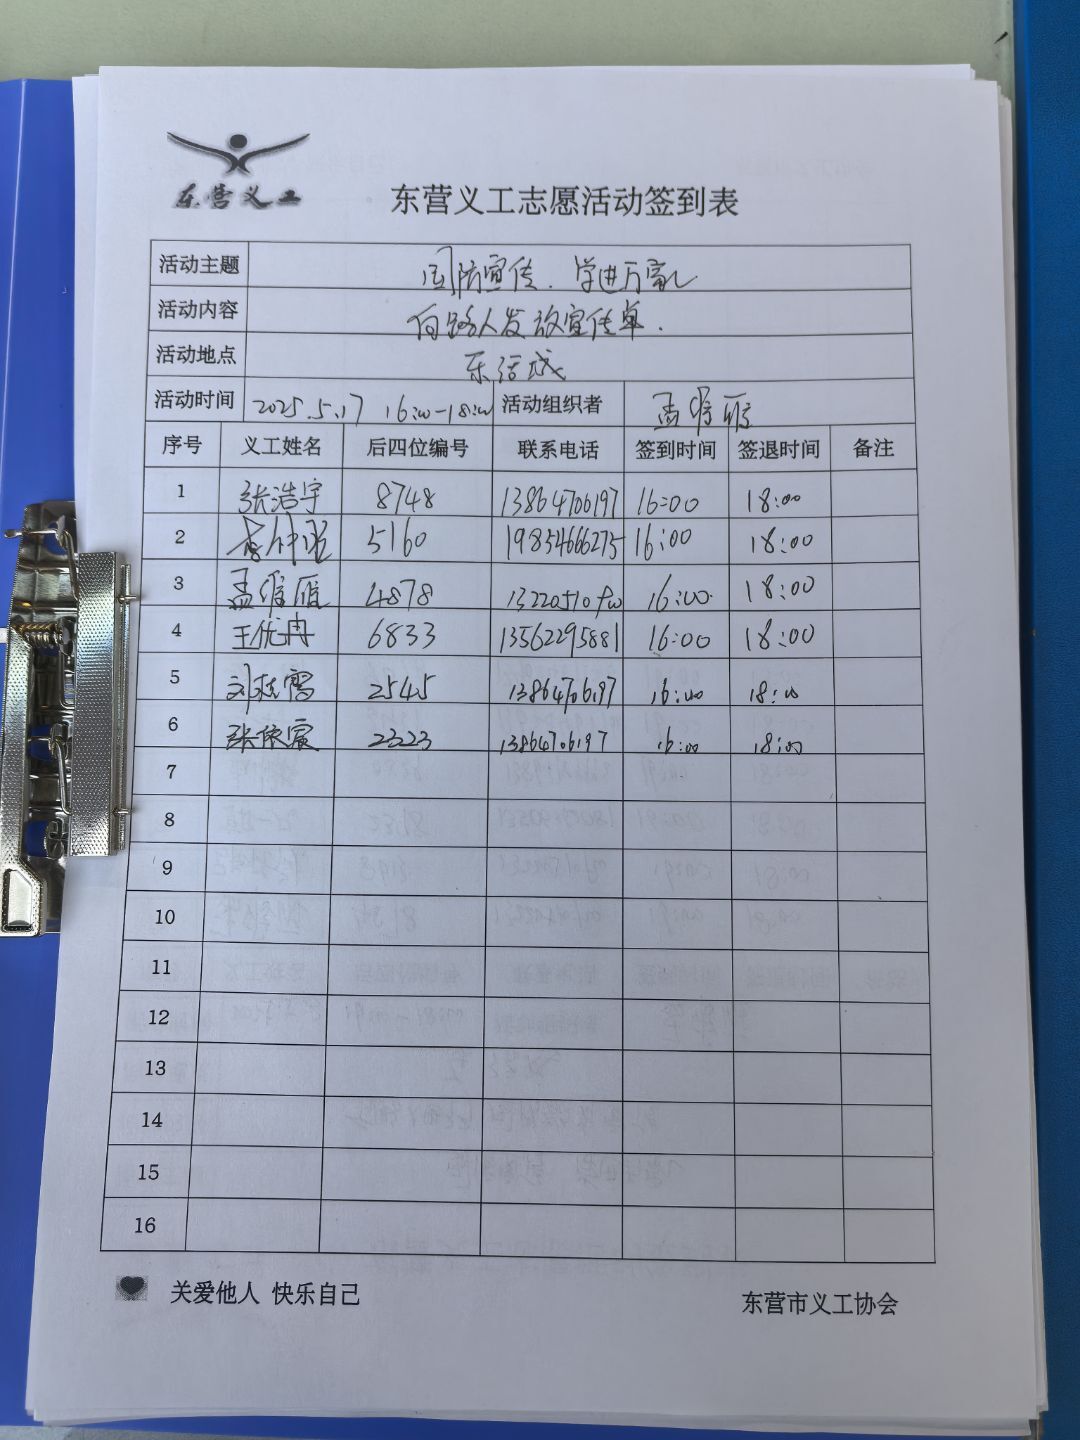 东营义工
东营义工志愿活动签到表
活动主题 国防宣传.学进万家
活动内容 向路人发放宣传单.
活动地点 东话城
活动时间 2025.5.17 16:00-18:00 活动组织者 孟
序号 义工姓名 后四位编号 联系电话 签到时间 签退时间 备注
1 张浩宇 8748 13864706197 16:00 18:00
2 5160 19854666275 16:00 18:00
3 孟 4878 16:00 18:00
4 王优冉 6833 13562295881 16:00 18:00
5 刘桂雪 2545 13864706197 16:00 18:00
6 张依宸 2323 13864706197 16:00 18:00
7
8
9
10
11
12
13
14
15
16
关爱他人 快乐自己
东营市义工协会